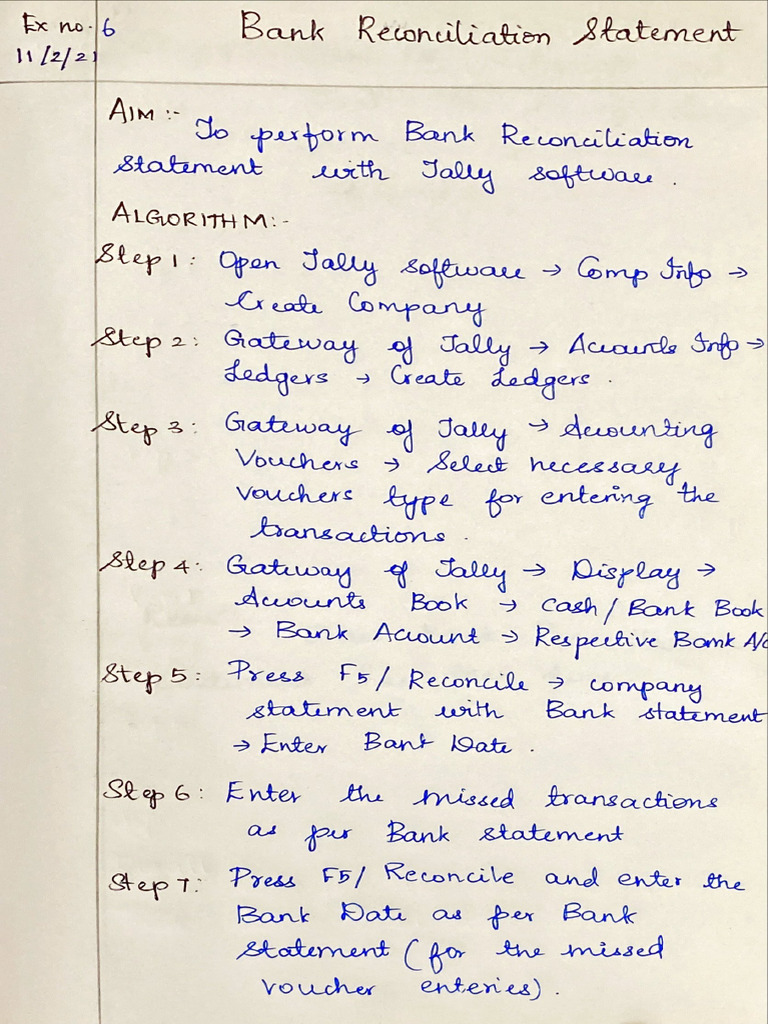 Ex no. 6
11/2/21
Bank Reconciliation Statement
AIM :-
To perform Bank Reconciliation
Statement with Tally software.
ALGORITHM:-
Step 1: Open Tally software → Comp Info →
Create Company
Step 2: Gateway of Tally → Accounts Info →
Ledgers → Create Ledgers.
Step 3: Gateway of Tally → Accounting
Vouchers → Select necessary
vouchers type for entering the
transactions.
Step 4: Gateway of Tally → Display →
Accounts Book → Cash/Bank Book
→ Bank Account → Respective Bank A/c
Step 5: Press F5/ Reconcile → company
statement with Bank statement
→ Enter Bank Date.
Step 6: Enter the missed transactions
as per Bank statement
Step 7: Press F5/ Reconcile and enter the
Bank Date as per Bank
Statement (for the missed
voucher enteries).